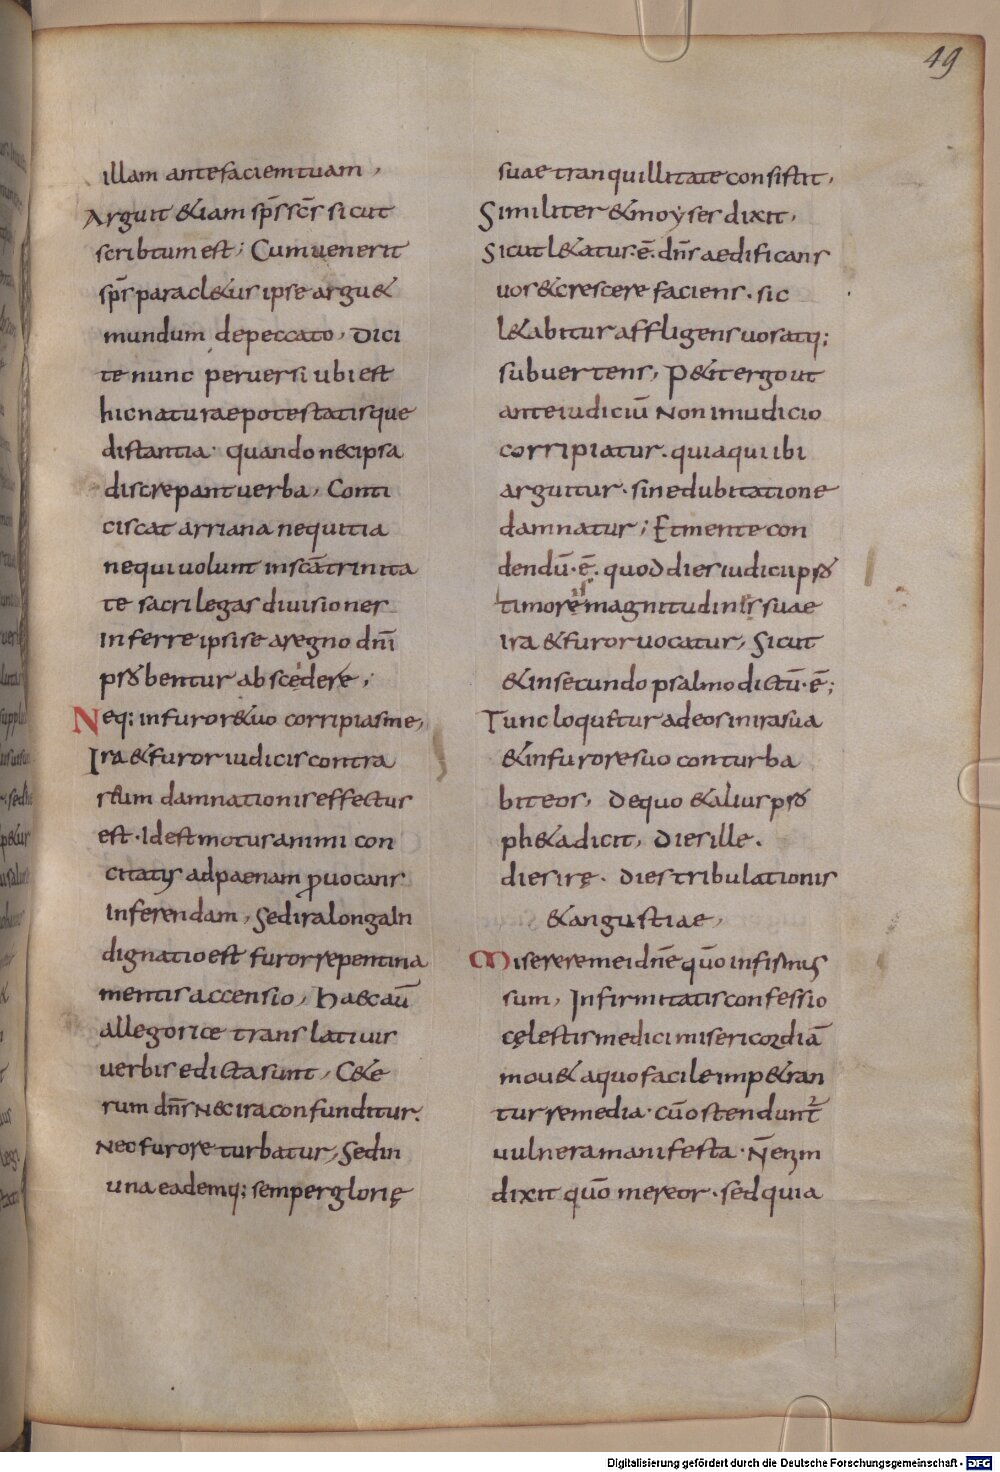 49
illam ante faciem tuam,
Arguit &iam sp̅s sc̅s sicut
scribtum est; Cum uenerit
sp̅s paracl&us ipse argu&
mundum de peccato, Dici
te nunc peruersi ubi est
hic naturae potestatisque
distantia· quando nec ipsa
discrepant uerba, Conti
ciscat arriana nequitia
nequi uolunt in sc̅a trinita
te sacrilegas diuisiones
Inferre ipsi se a regno dn̅i
pro bentur abscedere,
Neq; in furore tuo corripias me,
Ira & furor iudicis contra
reum damnationis effectus
est· Id est motus animi con
citatus ad paenam ꝓuocans
Inferendam, Sed ira longa In
dignatio est furor repentina
mentis accensio, Haec au̅
allegorice translatiuis
uerbis edicta sunt, C&e
rum dn̅s nec ira confunditur.
Nec furore turbatur, Sed in
una eademq; semper glorię
suae tranquillitate consistit,
Similiter & moyses dixit,
Sicut l&atus·e̅·dn̅s aedificans
uos & crescere faciens· sic
l&abitur affligens uos atq;
subuertens, P&it ergo ut
ante iudiciu̅ Non in iudicio
corripiatur· quia qui ibi
arguitur· sine dubitatione
damnatur; Et mente con
dendu̅·e̅· quod dies iudicii pro
timore magnitudinis suae
ira & furor uocatur, Sicut
& in secundo psalmo dictu̅·e̅;
Tunc loquetur ad eos in ira sua
& in furore suo conturba
bit eos, De quo & alius pro
ph&a dicit, Dies illa·
dies irę· Dies tribulationis
& angustiae,
Miserere mei dn̅e quo̅ infirmus
sum, Infirmitatis confessio
cęlestis medici misericordia̅
mou& a quo facile imp&ran
tur remedia· cu̅ ostendunt̅
uulnera manifesta· N̅ enim
dixit quo̅ mereor· sed quia
Digitalisierung gefördert durch die Deutsche Forschungsgemeinschaft - DFG